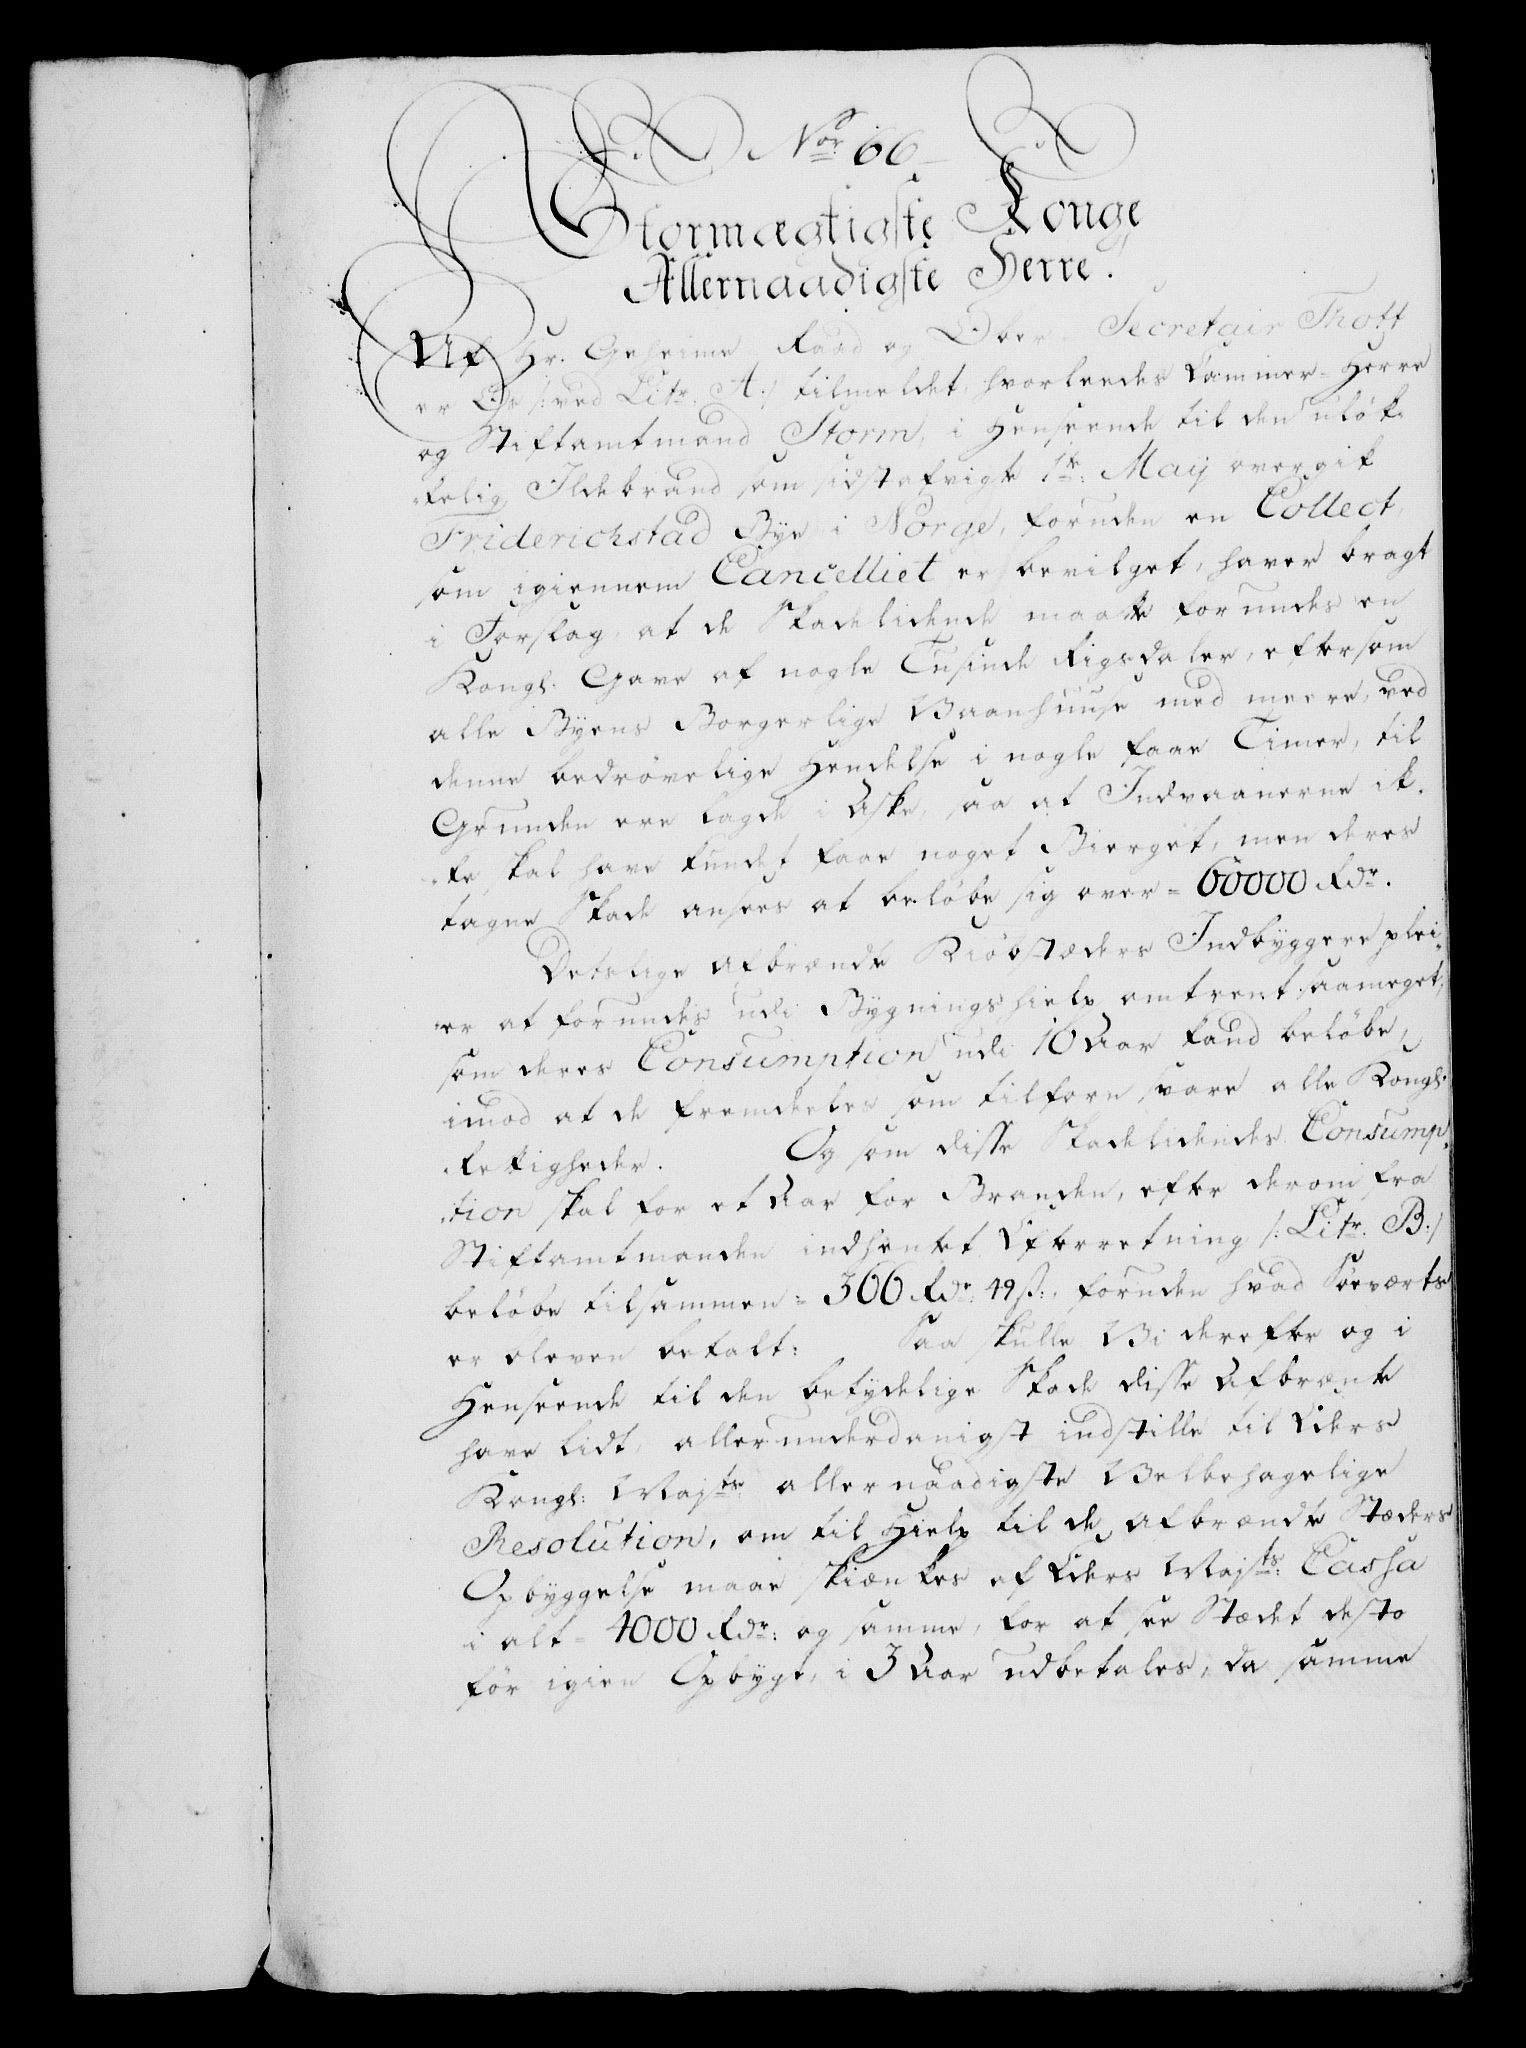 Nor 66
Stormægtigste Konge
Allernaadigste Herre.
Af Hr. Geheime Raad og Ober-Secretair Thott
er Os /:ved Litr. A:/ tilmeldet, hvorleedes Cammer-Herre
og Stiftamtmand Storm, i Henseende til den ulök-
kelig Ildebrand som sidstafvigte 1te May overgik
Friderichstad Bye i Norge, foruden en Collect,
som igiennem Cancelliet er bevilget, haver bragt
i Forslag, at de Skadelidende maatte forundes en
Kongl. Gave af nogle Tusinde Rigsdaler, eftersom
alle Byens Borgerlige Vaanhuuse med meere, ved
denne bedrøvelige Hendelse i nogle faae Timer, til
Grunden ere lagde i Aske, saa at Indvaanerne ik-
ke skal have kundet faae noget Bierget, men deres
tagne Skade ansees at beløbe sig over = 60000 Rdr.
Detslige afbrændte Kiöbstæders Indbyggere plei-
er at forundes udi Bygningshielp omtrent saameget,
som deres Consumption udi 10 Aar kand beløbe,
imod at de fremdeeles som tilforn svare alle Kongl.
Rettigheder. Og som disse Skadelidendes Consump-
tion skal for et Aar for Branden, efter derom fra
Stiftamtmanden indhentet Efterretning /: Litr. B:/
beløbe tilsammen = 366 Rdr. 49 ß:, foruden hvad Söeværts
er bleven betalt: Saa skulle Vi derefter og i
Henseende til den betydelige Skade disse Afbrændte
have lidt, allerunderdanigst indstille til Eders
Kongl: Majts allernaadigste Velbehagelige
Resolution, om til Hielp til de afbrændte Stæders
Opbyggelse maae skiænkes af Eders Majts: Cassa
i alt = 4000 Rdr: og samme, for at see Stædet desto
för igien Opbygt, i 3 Aar udbetales, da samme